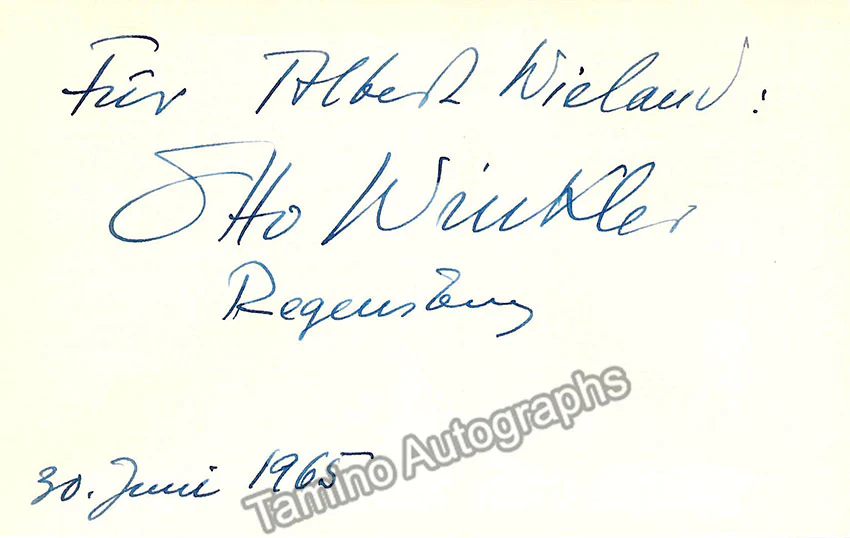 Für Albert Wieland:
Otto Winkler
Regensburg
30. Juni 1965
Tamino Autographs